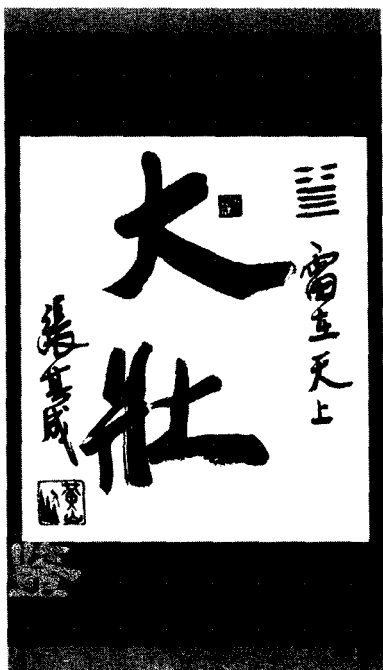 雷在天上
大壯
張其成